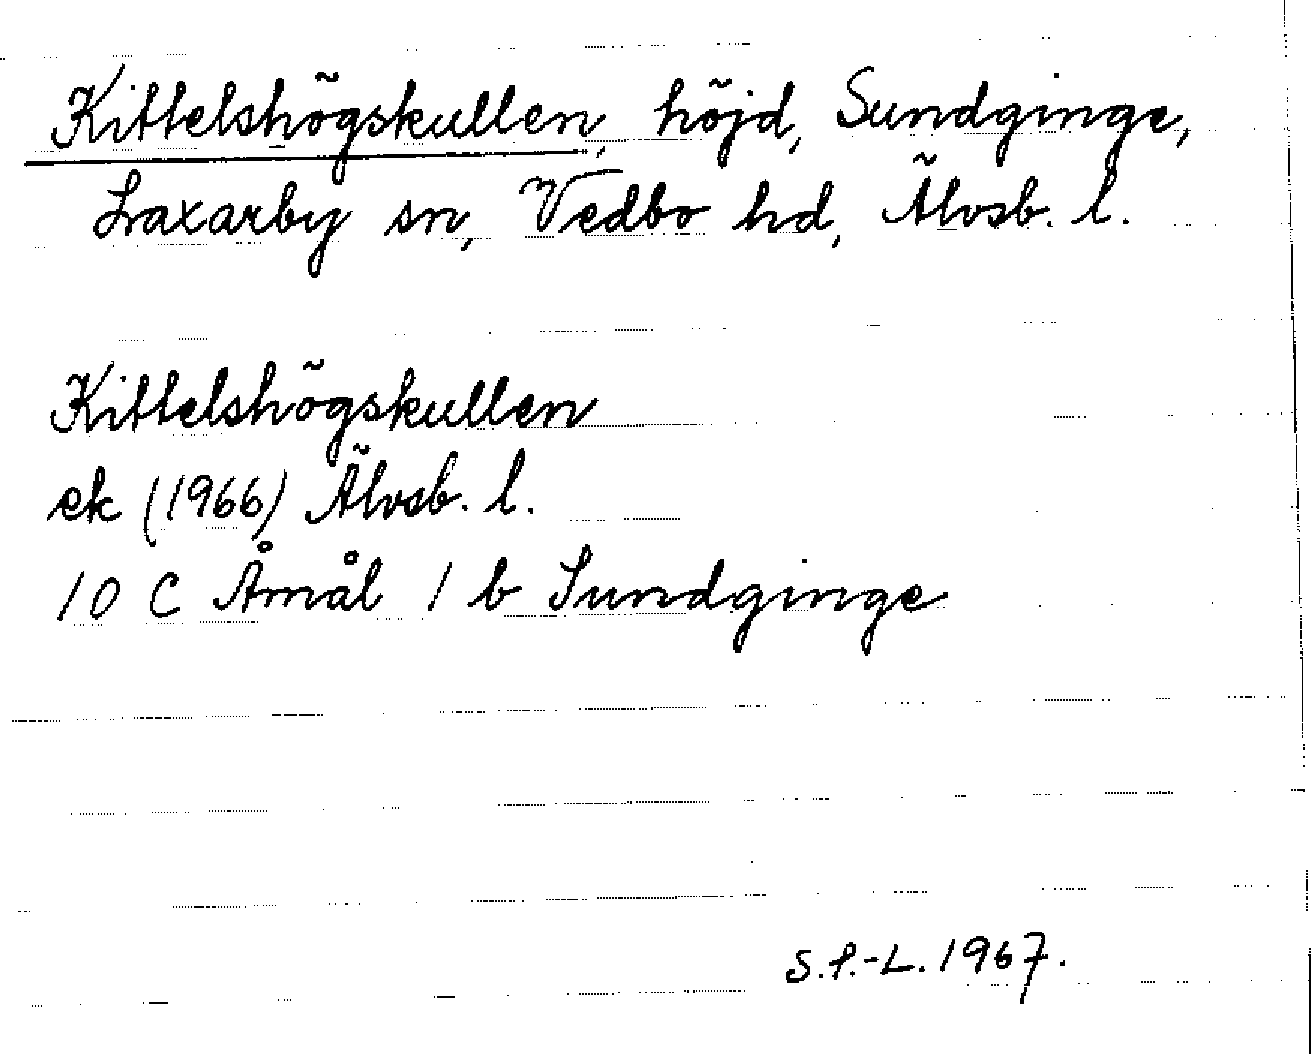 Kittelshögskullen, höjd, Sundginge,
Laxarby sn, Vedbo hd, Älvsb. l.
Kittelshögskullen
ek (1966) Älvsb. l.
10 C Åmål 1 b Sundginge
S.P.-L. 1967.